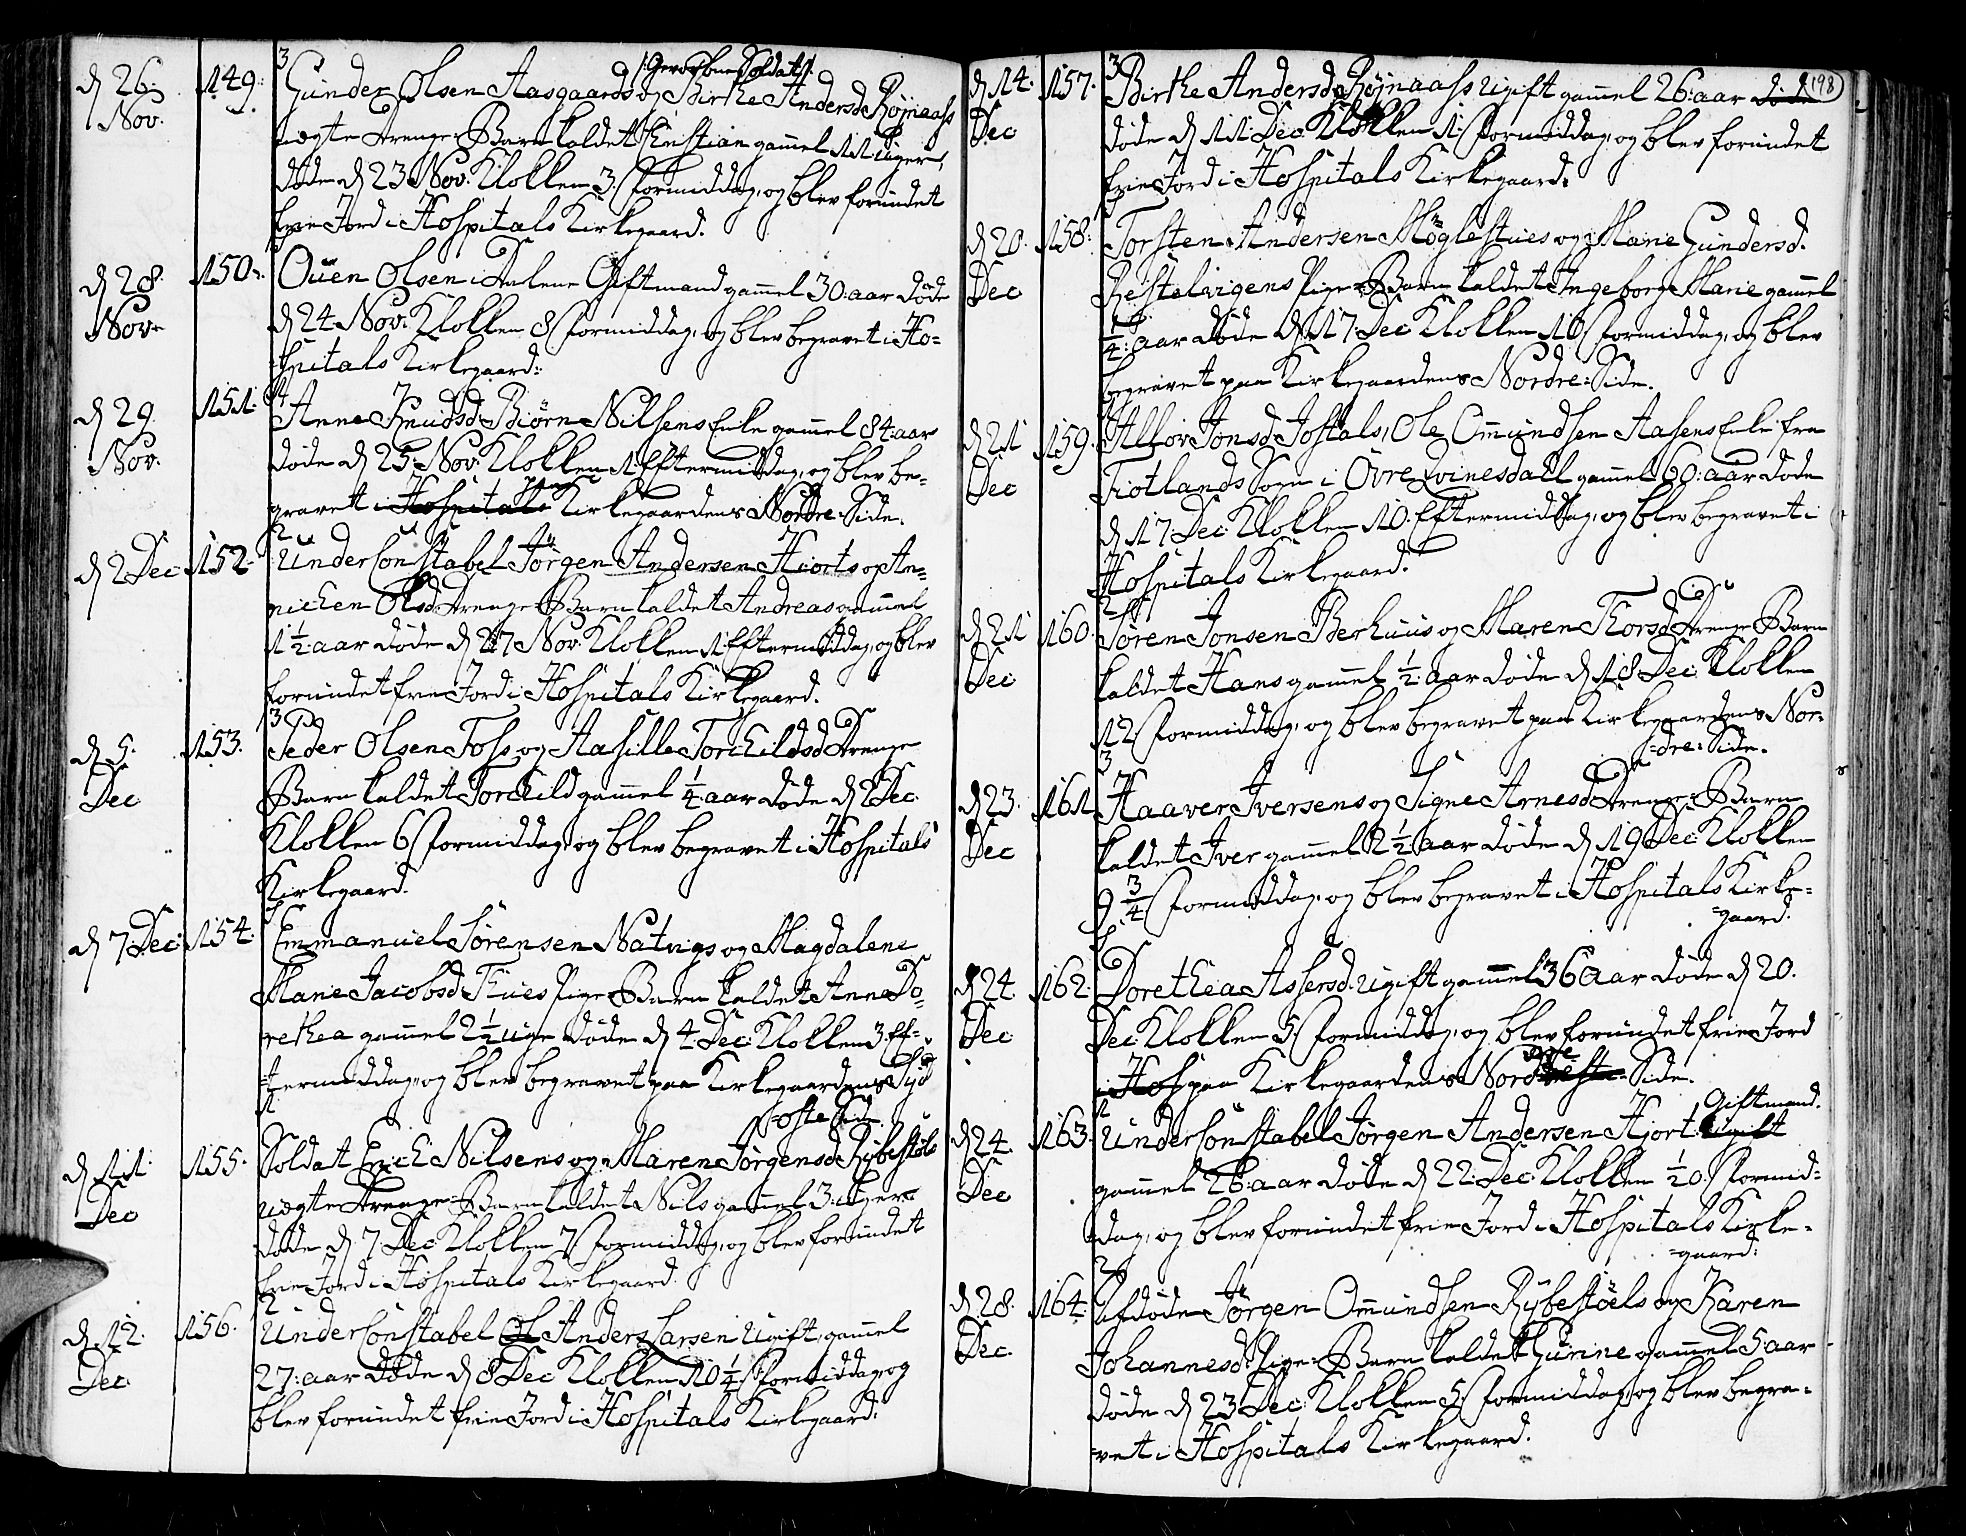 d 26: Nov. 149: 3 Gunder Olsen Aasgaards /: Gevorbne Soldat :/ og Birthe Andersd Röjnaass
uægte Drenge-Barn kaldet Christian gammel 11 uger,
døde d 23 Nov. Klokken 3 Formiddag, og blev forundet
frie Jord i Hospitals Kirkegaard.
d 28. Nov. 150. Ouen Olsen i Dalene Giftmand gammel 30: aar døde
d 24 Nov. Klokken 8 Formiddag, og blev begravet i Ho=
spitals Kirkegaard:
d 29 Nov. 151. 1 Anne Knudsd Biörn Nilsens Enke gammel 84: aar
døde d 25 Nov. Klokken 1 Eftermiddag, og blev be=
gravet i Hospitals paa Kirkegaardens Nordre-Side.
d 2 Dec 152. 2 Underconstabel Jörgen Andersen Hiorts og An=
nichen Olsd Drenge-Barn kaldet Andreas gammel
1 1/2: aar døde d 27 Nov. Klokken 1 Eftermiddag, og blev
forundet frie Jord i Hospitals Kirkegaard.
d 5. Dec 153. 3 Peder Olsen Foss og Aasille Torchildsd Drenge
Barn kaldet Torchild gammel 1/4: aar døde d 2 Dec.
Klokken 6 Formiddag, og blev begravet i Hospitals
Kirkegaard.
d 7 Dec: 154. Emmanuel Sörensen Natvigs og Magdalene
Marie Jacobsd Thues Pige-Barn kaldet Anne Do=
rethea gammel 2 1/2 uge døde d 4 Dec: Klokken 3 Ef=
termiddag, og blev begravet paa Kirkegaardens Syd
=oste Side.
d 11: Dec 155. 1 Soldat Erich Nilsens og Maren Jörgensd Rybestöls
uægte Drenge-Barn kaldet Nils gammel 3: uger
døde d 7 Dec Klokken 7 Formiddag, og blev forundet
frie Jord i Hospitals Kirkegaard.
d 12. Dec. 156. 2 Underconstabel Ol Anders Larsen Ugift, gammel
27: aar døde d 8 Dec Klokken 10 1/4 Formiddag, og
blev forundet frie Jord i Hospitals Kirkegaard:
198
d 14. Dec 157. 3 Birthe Andersd Röjnaass Ugift gammel 26: aar døde
døde d 11 Dec Klokken 1 Formiddag, og blev forundet
frie Jord i Hospitals Kirkegaard.
d 20. Dec 158. Torsten Andersen Möglestues og Marie Gundersd.
Gestelvigens Pige-Barn kaldet Ingeborg Marie gammel
1/4: aar døde d 17 Dec Klokken 10 Formiddag, og blev
begravet paa Kirkegaardens Nordre-Side.
d 21 Dec 159. Allov Jonsd Jostals, Ole Omundsen Aasens Enke fra
Fiotlands Sogn i Øvre Qvinesdall gammel 60: aar døde
d 17 Dec: Klokken 10. Eftermiddag, og blev begravet i
Hospitals Kirkegaard.
d 21 Dec: 160. 2 Sören Jonsen Berhuus og Maren Thorsd Drenge Barn
kaldet Hans gammel 1/2: aar døde d 18 Dec: Klokken
12 Formiddag, og blev begravet paa Kirkegaardens Nor=
=dre-Side.
d 23. Dec 161 3 Haaver Iversens og Signe Arnesd Drenge-Barn
kaldet Iver gammel 2 1/2: aar døde d 19 Dec: Klokken
9 3/4 Formiddag, og blev begravet i Hospitals Kirke=
=gaard.
d 24. Dec 162. Dorethea Assersd. Ugift gammel 36 aar døde d 20.
Dec: Klokken 5 Formiddag, og blev forundet frie Jord
i Hos paa Kirkegaardens Nordre Side.
d 24. Dec 163. 1 Underconstabel Jörgen Andersen Hjort Ugift Giftmand.
gammel 26: aar døde d 22: Dec: Klokken 1/2 0. Formid=
dag, og blev forundet frie Jord i Hospitals Kirke=
=gaard:
d 28. Dec. 164. 2 Afdøde Jörgen Omundsen Rybestöels og Karen
Johannesd. Pige-Barn kaldet Gurine gammel 5 aar
døde d 23 Dec: Klokken 5 Formiddag, og blev begra=
=vet i Hospitals Kirkegaard.